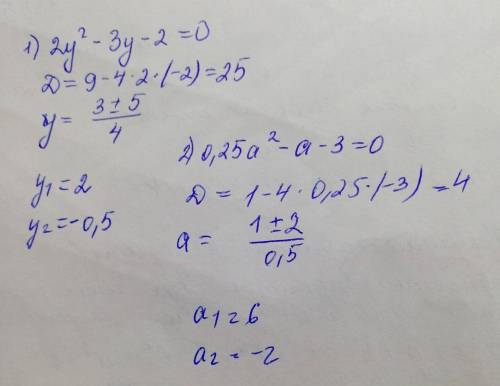 1) 2y² - 3y - 2 = 0
D = 9 - 4 · 2 · (-2) = 25
y = (3 ± 5)/4
y₁ = 2
y₂ = -0,5
2) 0,25a² - a - 3 = 0
D = 1 - 4 · 0,25 · (-3) = 4
a = (1 ± 2)/0,5
a₁ = 6
a₂ = -2